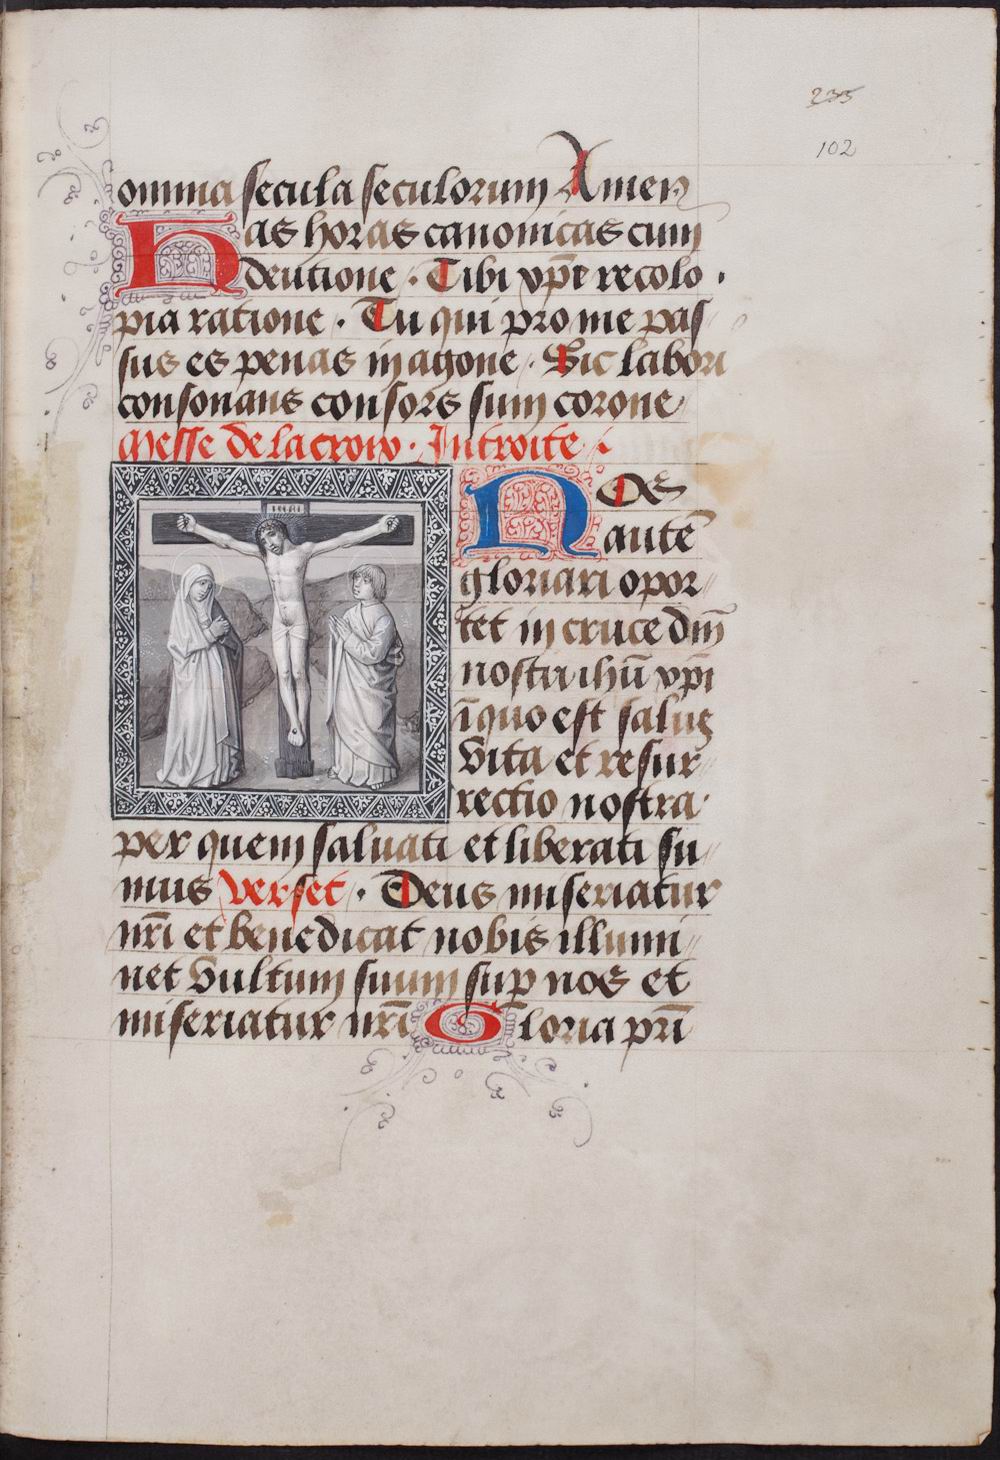 235
102
omnia secula seculorum Amen
Has horas canonicas cum
deuotione · Tibi xp̄e recolo ·
pia ratione · Tu qui pro me pas
sus es penas in agone · Sic labori
consonans consors sum corone
Messe de la croix · Introite
INRI
Nos
autē
gloriari opor
tet in cruce dn̄i
nostri ihū xp̄i
ī quo est salus
vita et resur
rectio nostra
per quem saluati et liberati su
mus verset · Deus miseriatur
nr̄i et benedicat nobis illumi
net vultum suum sup nos et
miseriatur nr̄i Gloria pr̄i